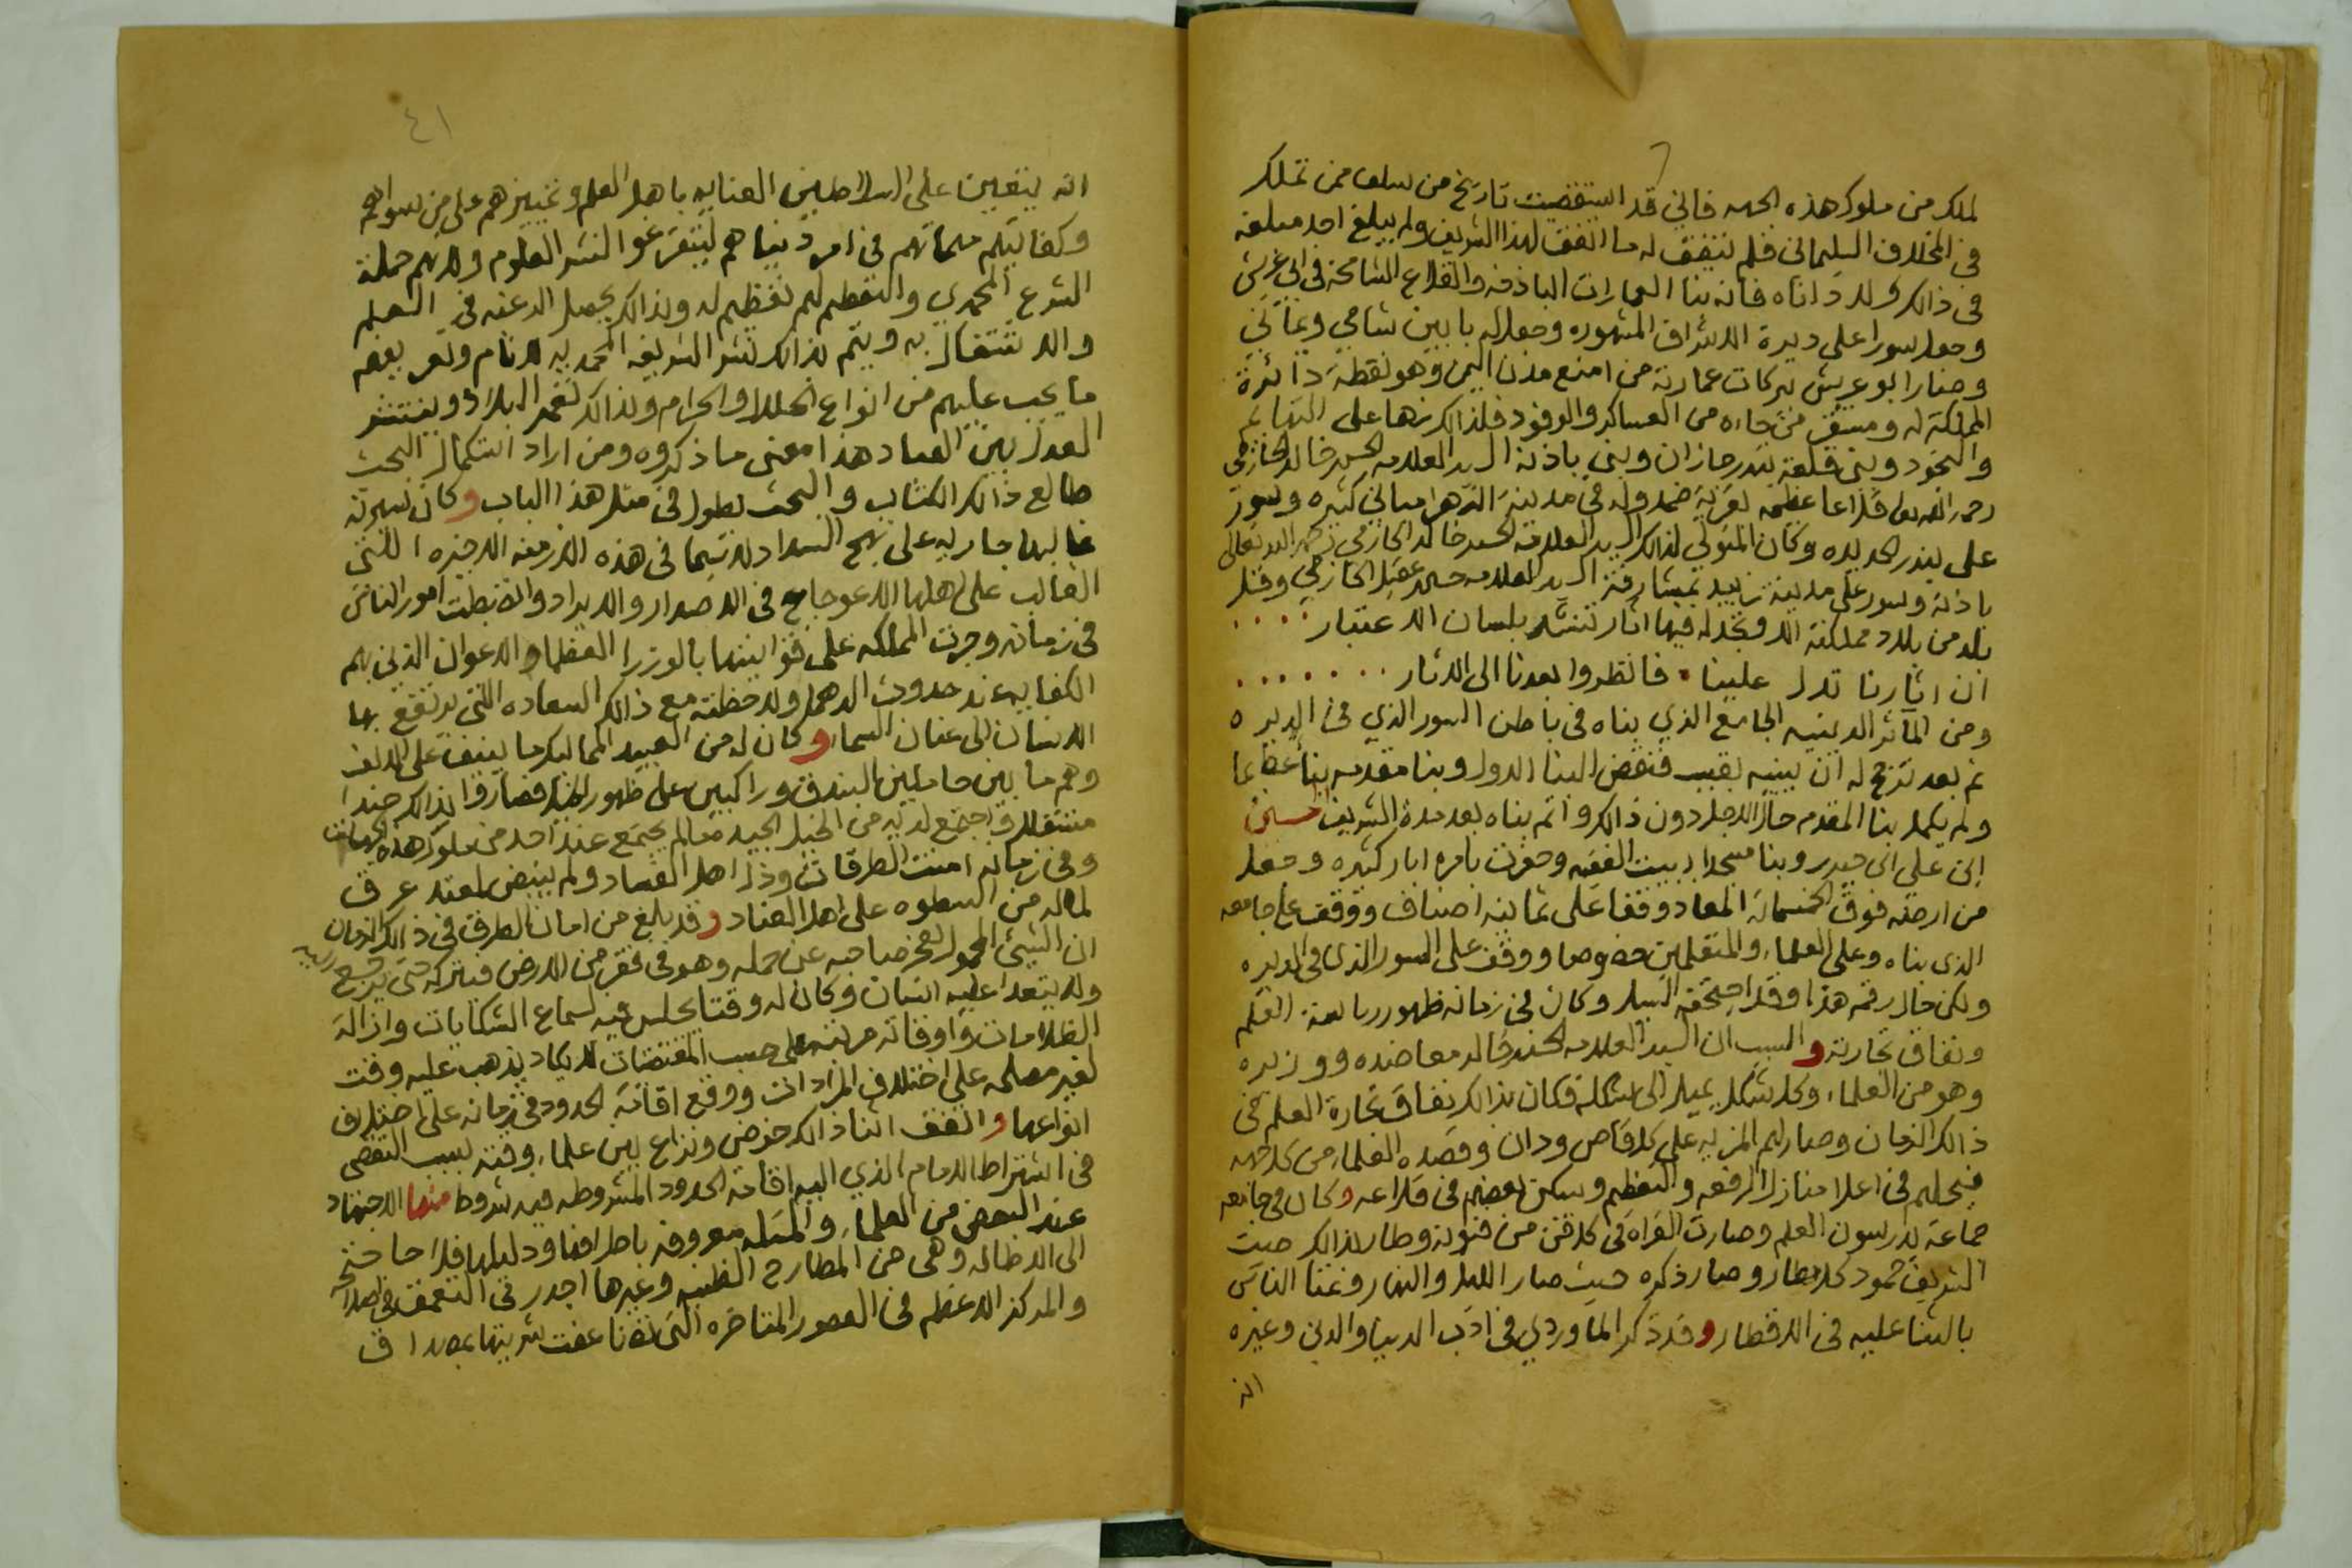 لملك من ملوك هذه الجهه فاني قد استقضيت تاريخ من سلف ممن تملك
في المخلاف السليماني فلم يتفق له ما اتفق لهذا الشريف ولم يبلغ احد مبلغه
في ذالك ولا داناه فانه بنا العمارات الباذخه والقلاع الشامخه في ابي عريش
وجعل سورا على ديرة الاشراف المشهوره وجعل له بابين شامي ويماني
وصار ابو عريش ببركات عمارته من امنع مدن اليمن وهو نقطة دائرة
المملكة له ومستقر من جاءه من العساكر والوفود فلذالك زها على التهايم
والنجود وبنى قلعة بندر جازان وبنى باذنه السيد العلامه الحسن خالد الحازمي
رحمه الله تعالى قلاعا عظيمه لقرية ضمد وله في مدينة الزهرا مباني كثيره وسور
على بندر الحديده وكان المتولي لذالك السيد العلامه الحسن خالد الحازمي رحمه الله تعالى
باذنه وسور على مدينة زبيد بمشارفة السيد العلامه حسن عقيل الحازمي وقل
بلد من بلاد مملكته الا وتجد له فيها اثار تنشد بلسان الاعتبار ....
ان اثارنا تدل علينا . فانظروا بعدنا الى الاثار .......
ومن المآثر الدينيه الجامع الذي بناه في باطن السور الذي في الديره
ثم بعد ترجح له ان يبنيه بقبب فنقض البنا الاول وبنا مقدمه بنا عظيما
ولم يكمل بنا المقدم حال الاجل دون ذالك واتم بناه بعد مدة الشريف الحسين
ابن علي ابن حيدر وبنا مسجدا ببيت الفقيه وحفرت بامره ابار كثيره وجعل
من ارضه فوق الخمسمائة المعاد وقفا على ثمانية اصناف ووقف على جامعه
الذي بناه وعلى العلماء والمتعلمين خصوصا ووقف على السور الذي في الديره
ولكن حال رقم هذا وقد اجتحفه السيل وكان في زمانه ظهور رياسة العلم
ونفاق تجارته والسبب ان السيد العلامه الحسن خالد معاضده ووزيره
وهو من العلماء وكل شكل يميل الى شكله فكان بذالك نفاق تجارة العلم في
ذالك الزمان وصار لهم المزيه على كل قاص ودان وقصده العلماء من كل جهه
فيحلهم في اعلا منازل الرفعه والتعظيم وسكن بعضهم في قلاعه وكان في جامعه
جماعة يدرسون العلم وصارت القراة في كل فن من فنونه وطار بذالك صيت
الشريف حمود كل مطار وصار ذكره حيث صار الليل والنهار وغنا الناس
بالثنا عليه في الاقطار وقد ذكر الماوردي في ادب الدنيا والدين وغيره
انه
٤١
انه يتعين على السلاطين العنايه باهل العلم وتمييزهم على من سواهم
وكفايتهم مهماتهم في امر دنياهم ليتفرغوا لنشر العلوم ولانهم حملة
الشرع المحمدي والتعظيم لهم تعظيم له وبذالك يحصل الرغبه في العلم
والاشتغال به ويتم بذالك نشر الشريعه المحمديه للانام وتعريفهم
ما يجب عليهم من انواع الحلال والحرام وبذالك تعمر البلاد وينتشر
العدل بين العباد هذا معنى ما ذكروه ومن اراد استكمال البحث
طالع ذالك الكتاب والبحث يطول في مثل هذا الباب وكان سيرته
غالبها جاريه على نهج السداد لاسيما في هذه الازمنه الاخيره اللتي
الغالب على اهلها الاعوجاج في الاصدار والايراد وانضبطت امور الناس
في زمانه وجرت المملكه على قوانينها بالوزرا العقلاء والاعوان الذين بهم
الكفايه عند حدوث الدهما ولاحظته مع ذالك السعاده اللتي يرتفع بها
الانسان الى عنان السما وكان له من العبيد المماليك ما ينيف على الالف
وهم ما بين حاملين البندق وراكبين على ظهور الخيل فصاروا بذالك جندا
مستقلا واجتمع لديه من الخيل الجيد ما لم يجتمع عند احد من ملوك هذه الجهات
وفي زمانه امنت الطرقات وذل اهل الفساد ولم ينبض لمعتد عرق
لما له من السطوه على اهل العناد وقد بلغ من امان الطرق في ذالك الزمان
ان الشيئ المحمول يعجز صاحبه عن حمله وهو في قفر من الارض فيتركه حتى يرجع اليه
ولا يتعدا عليه انسان وكان له وقتا يجلس فيه لسماع الشكايات وازالة
الظلامات واوقاته مرتبه على حسب المقتضات لا يكاد يذهب عليه وقت
لغير مصلحه على اختلاف المرادات ووقع اقامة الحدود في زمانه على اختلاف
انواعها واتفق اثنا ذالك خوض ونزاع بين علماء وقته بسبب التقصي
في اشتراط الامام الذي اليه اقامة الحدود المشروطه فيه شروط منها الاجتهاد
عند البعض من العلماء والمسله معروفه باطرافها ودليلها فلا حاجة
الى الاطاله وهي من المطارح الظنيه وغيرها اجدر في التعمق
والمدكز الاعظم في العصور المتاخره التي تضاعفت شريتها بمصداق